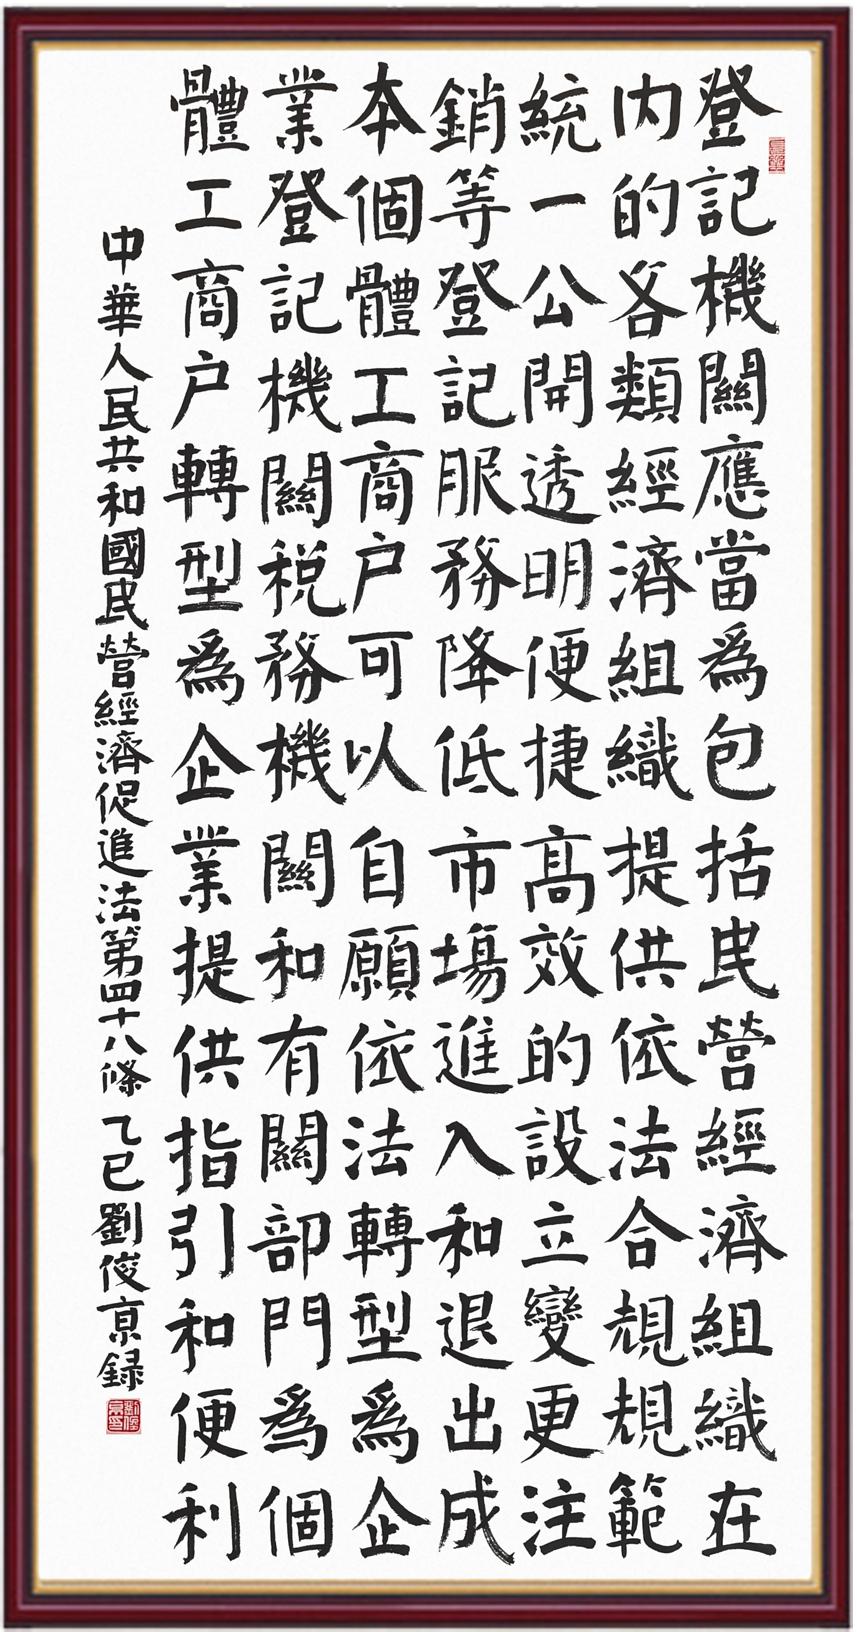 登記機關應當為包括民營經濟組織在
内的各類經濟組織提供依法合規規範
統一公開透明便捷高效的設立變更注
銷等登記服務降低市塲進入和退出成
本個體工商户可以自願依法轉型為企
業登記機關税務機關和有關部門為個
體工商户轉型為企業提供指引和便利
中華人民共和國民營經濟促進法第四十八條 乙巳 劉俊京録
劉俊京印